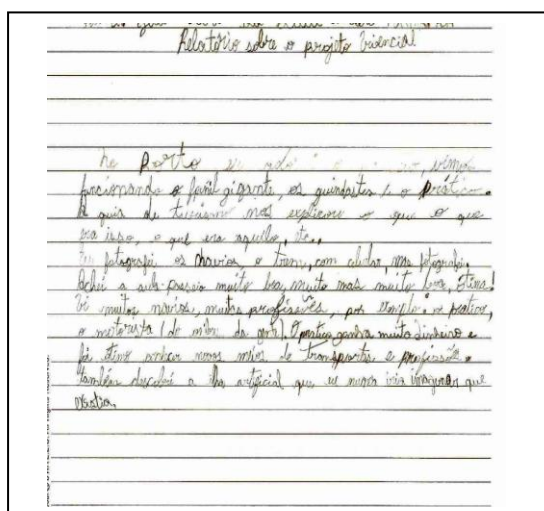 Relatório sobre o projeto vivencial
No Porto, vimos
funcionando o funil gigante, os guindastes e o prático.
A guia de turismo nos explicava o que o que
era isso, o que era aquilo, etc..
Eu fotografei os navios, o trem, com celular, uma fotografia.
Achei a aula-passeio muito boa, muito mas muito boa, ótima!
Vi muitos navios, muitas profissões, por exemplo: o pratico,
o motorista (do onibus da gente). O pratico ganha muito dinheiro e
foi otimo conhecer novos meios de transportes e profissões.
também descobri a ilha artificial que eu nunca iria imaginar que
existia.